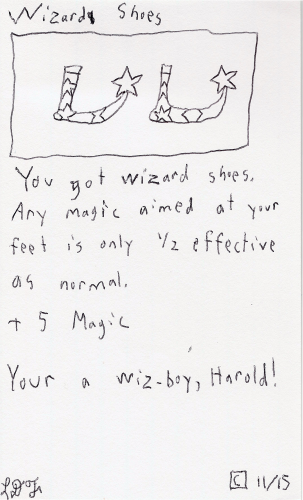 Wizard Shoes
You got wizard shoes.
Any magic aimed at your
feet is only 1/2 effective
as normal.
+ 5 Magic
Your a wiz-boy, Harold!
C 11/15